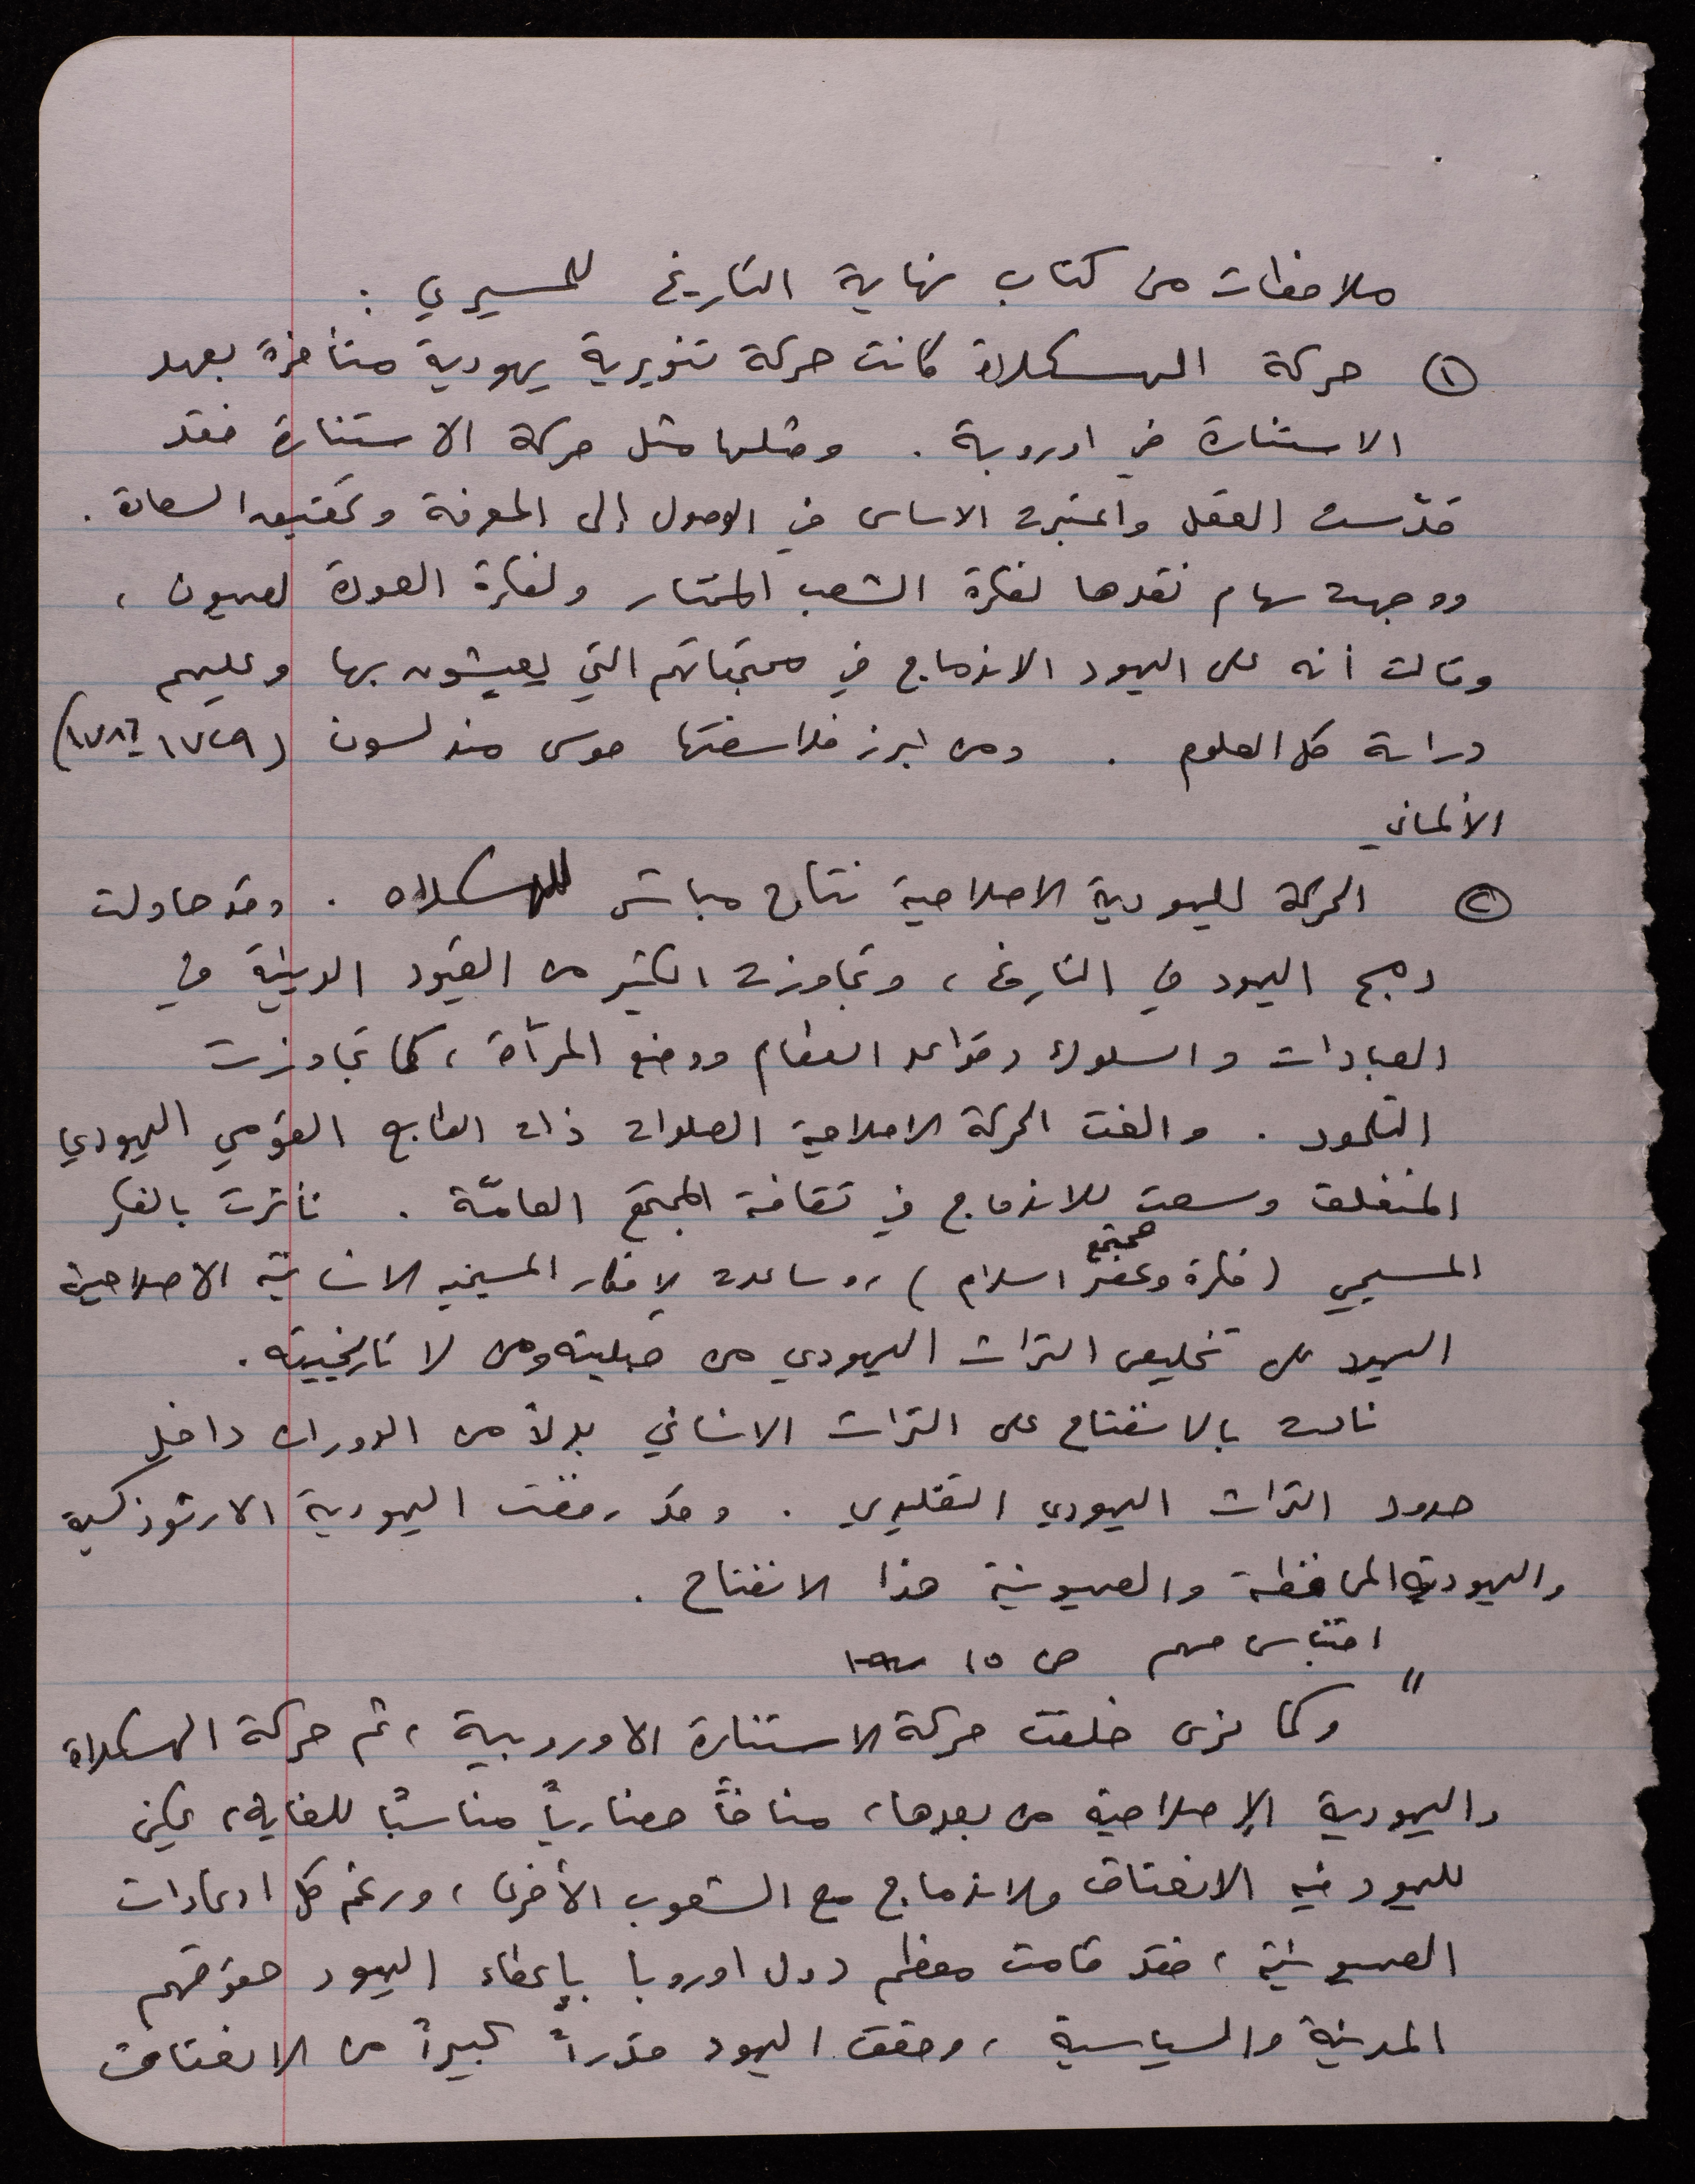 ملاحظات من كتاب نهاية التاريخ للمسيري :
① حركة الهسكلاة كانت حركة تنويرية يهودية متأخرة بعهد
الاستنارة في اوروبة . ومثلها مثل حركة الاستنارة فقد
قدّست العقل واعتبرت الاساس في الوصول إلى المعرفة وتحقيق السعادة .
ووجهت سهام نقدها لفكرة الشعب المختار ولفكرة العودة لصهيون ،
وقالت أنه على اليهود الاندماج في مجتمعاتهم التي يعيشون بها وعليهم
دراسة كل العلوم . ومن ابرز فلاسفتها موسى مندلسون (١٧٢٩ - ١٧٨٦)
الألماني
② الحركة اليهودية الاصلاحية نتاج مباشر للهسكلاه . وقد حاولت
دمج اليهود في التاريخ ، وتجاوزت الكثير من القيود الدينية في
العبادات والسلوك وقواعد الطعام ووضع المرأة ، كما تجاوزت
التلمود . والغت الحركة الاصلاحية الصلوات ذات الطابع القومي اليهودي
المنغلق وسعت للاندماج في ثقافة المجتمع العامّة . تأثرت بالفكر
المسيحي (فكرة وعصر مجتمع اسلام) ، وساعدت الافكار المسيحية الانسانية الاصلاحية
اليهود على تخليص التراث اليهودي من قبليته ومن لا تاريخيته .
نادت بالانفتاح على التراث الانساني بدلاً من الدوران داخل
حدود التراث اليهودي التقليدي . وقد رفضت اليهودية الارثوذكسية
واليهودية المحافظة والصهيونية هذا الانفتاح .
اقتباس مهم ص ١٥
" وكما نرى خلقت حركة الاستنارة الاوروبية ، ثم حركة الهسكلاة
واليهودية الإصلاحية من بعدها ، مناخاً حضارياً مناسبًا للغاية ، يمكن
لليهود فيه الانعتاق والاندماج مع الشعوب الأخرى ، ورغم كل ادعاءات
الصهيونية ، فقد قامت معظم دول اوروبا بإعطاء اليهود حقوقهم
المدنية والسياسية ، وحقق اليهود قدراً كبيراً من الانعتاق